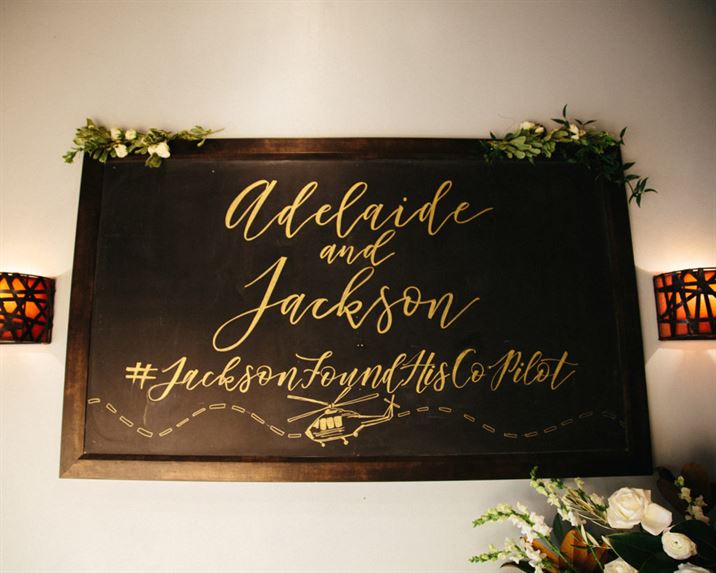 Adelaide
and
Jackson
#JacksonFoundHisCoPilot